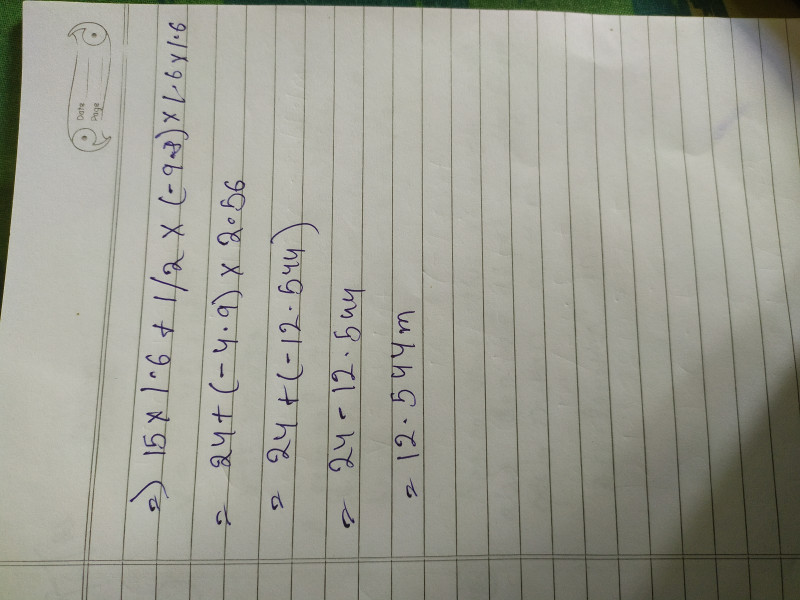 Date
Page
2) 15 x 1.6 + 1/2 x (-9.8) x 1.6 x 1.6
= 24 + (-4.9) x 2.56
= 24 + (-12.544)
= 24 - 12.544
= 12.544m